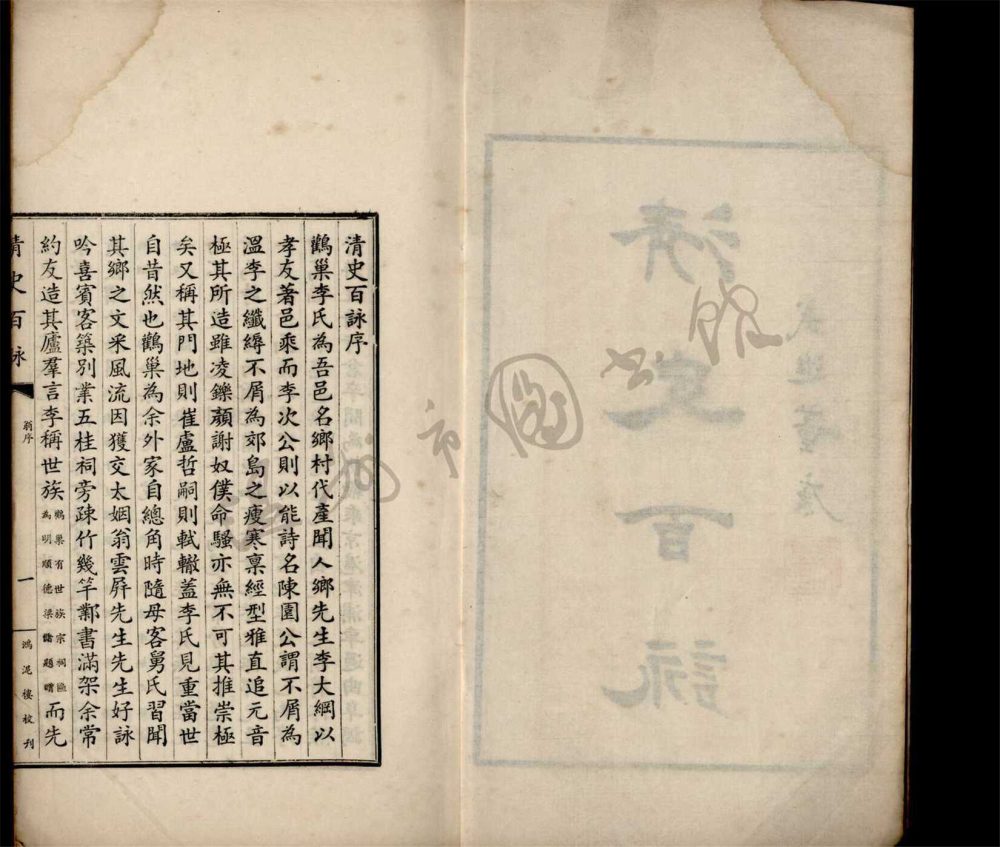 清史百詠序
鸛巢李氏為吾邑名鄉村代產聞人鄉先生李大綱以
孝友著邑乘而李次公則以能詩名陳園公謂不屑為
溫李之纖縟不屑為郊島之瘦寒稟經型雅直追元音
極其所造雖凌鑠顏謝奴僕命騷亦無不可其推崇極
矣又稱其門地則崔盧哲嗣則軾轍蓋李氏見重當世
自昔然也鸛巢為余外家自總角時隨母客舅氏習聞
其鄉之文采風流因獲交太姻翁雲屏先生先生好詠
吟喜賓客築別業五桂祠旁疎竹幾竿鄴書滿架余常
約友造其廬羣言李稱世族鸛巢有世族宗祠匾為明順德梁儲題贈而先
清史百詠
翁序
一
鴻泥樓校刊
清史百詠
市圖書館